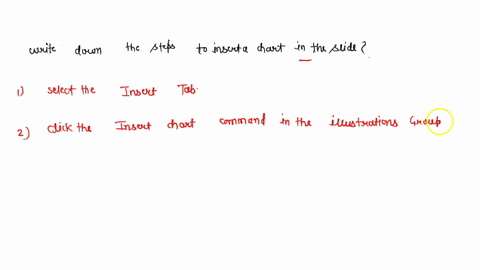 write down the steps to insert a chart in the slide?
1) select the Insert Tab.
2) click the Insert chart command in the illustrations Group